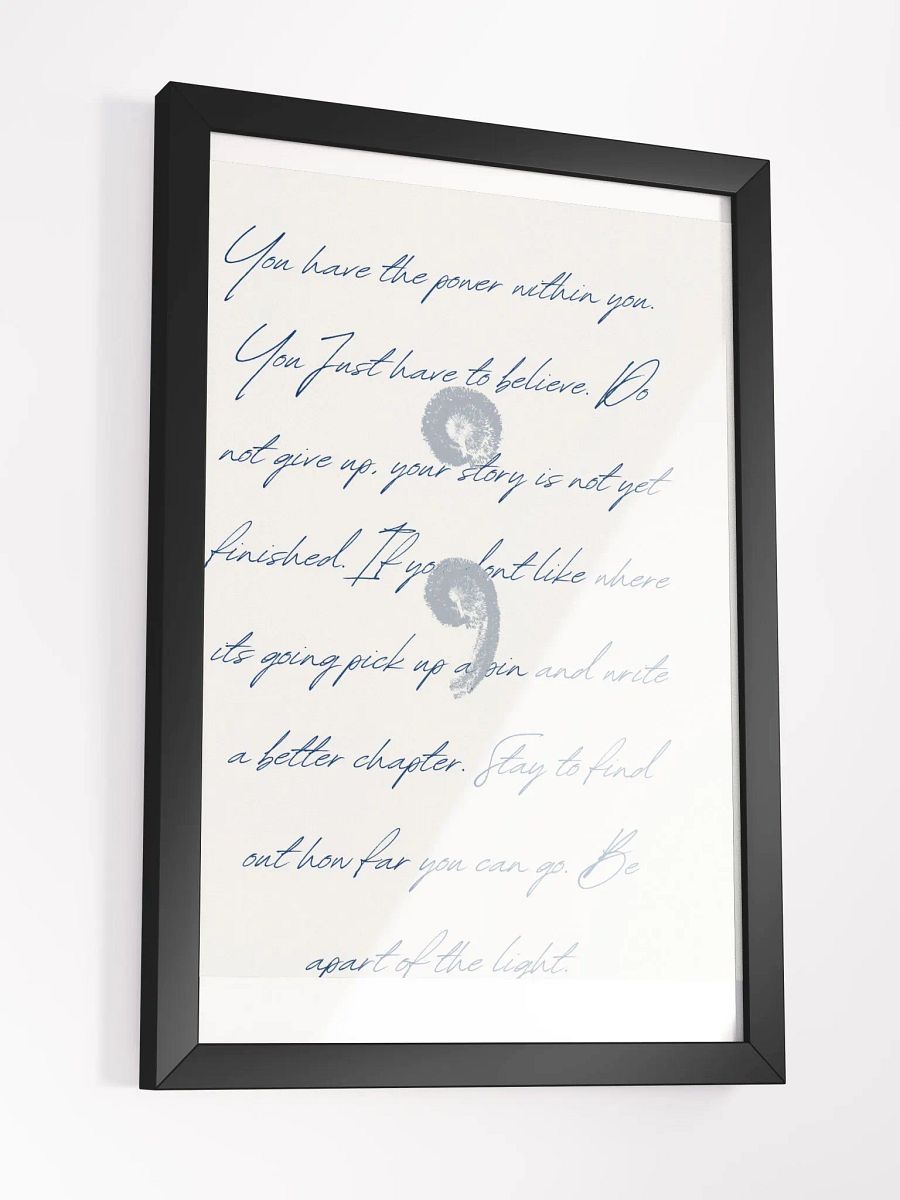 You have the power within you.
You Just have to believe. Do
not give up. your story is not yet
finished. If you dont like where
its going pick up a pin and write
a better chapter. Stay to find
out how far you can go. Be
apart of the light.